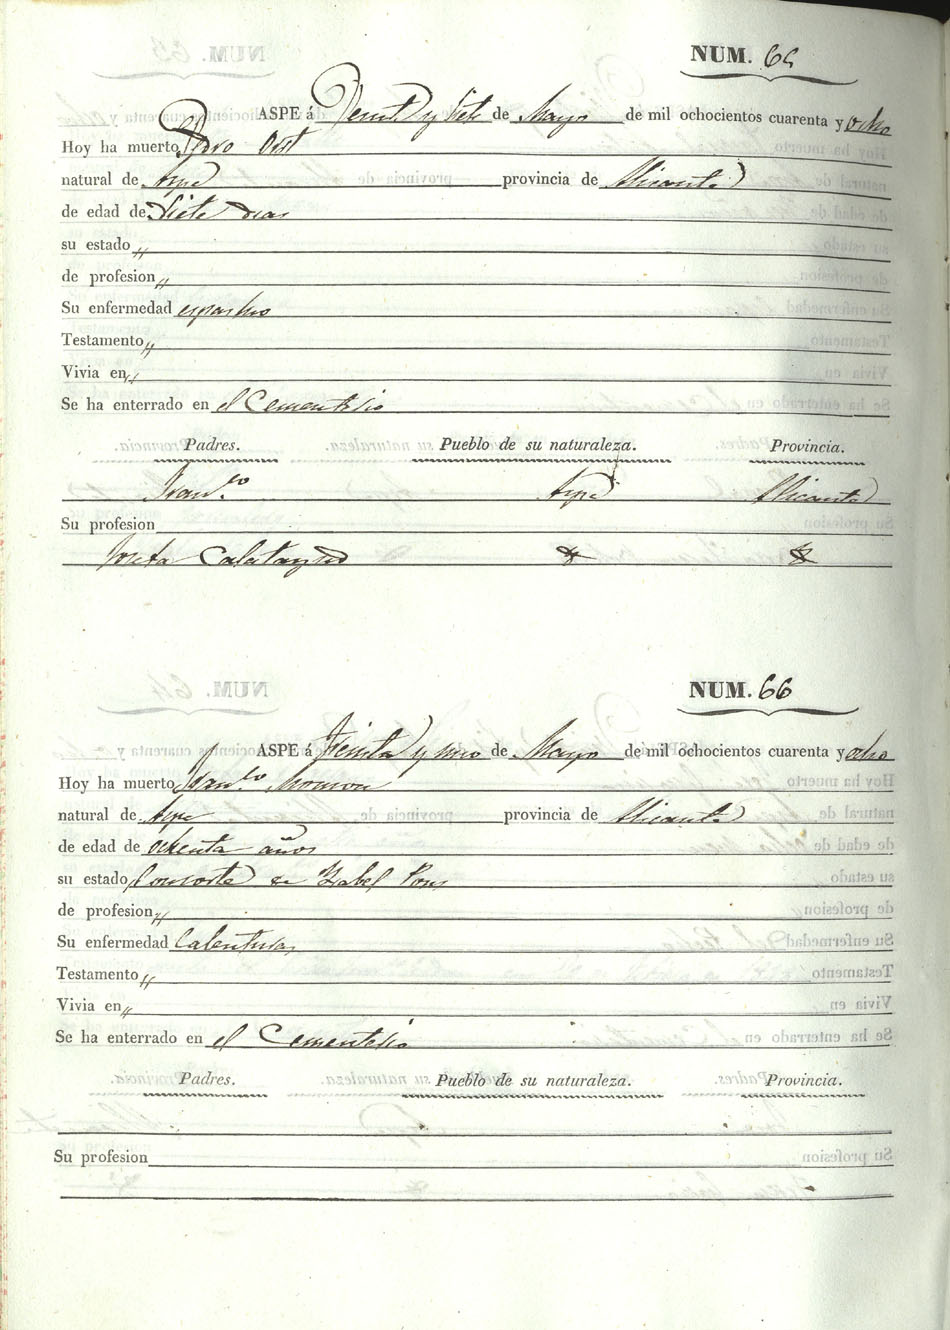 NUM. 65
ASPE á Veint y Siete de Mayo de mil ochocientos cuarenta y ocho
Hoy ha muerto Pedro Orts
natural de Aspe provincia de Alicante
de edad de Siete dias
su estado „
de profesion „
Su enfermedad
Testamento „
Vivia en „
Se ha enterrado en el Cementerio
Padres. Pueblo de su naturaleza. Provincia.
Fran.co Aspe Alicante
Su profesion
Josefa Calatayud
NUM. 66
ASPE á Treinta y uno de Mayo de mil ochocientos cuarenta y ocho
Hoy ha muerto Fran.co
natural de Aspe provincia de Alicante
de edad de ochenta años
su estado Consorte de Isabel Pons
de profesion „
Su enfermedad Calenturas
Testamento „
Vivia en „
Se ha enterrado en el Cementerio
Padres. Pueblo de su naturaleza. Provincia.
Su profesion